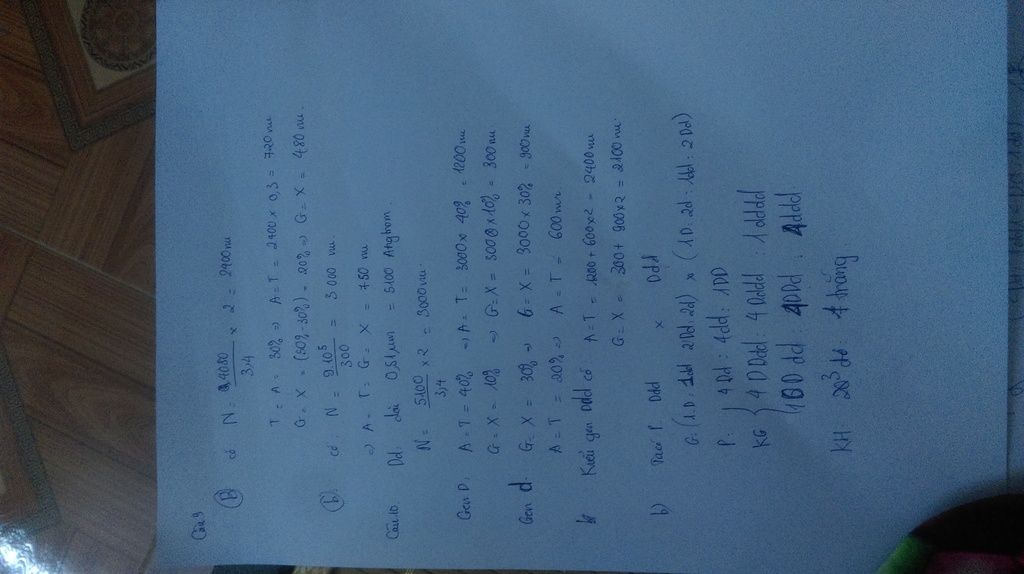 Câu 9
(B) có N = 4080/3,4 x 2 = 2400 nu
T = A = 30% => A = T = 2400 x 0,3 = 720 nu
G = X = (50% - 30%) = 20% => G = X = 480 nu.
(b) có N = 9.10⁵/300 = 3000 nu.
=> A = T = G = X = 750 nu
Câu 10. Dd, dài 0,51 µm = 5100 Atghom
N = 5100/3,4 x 2 = 3000 nu.
Gen D, A = T = 40% => A = T = 3000 x 40% = 1200 nu
G = X = 10% => G = X = 3000 x 10% = 300 nu
Gen d. G = X = 30% => G = X = 3000 x 30% = 900 nu
A = T = 20% => A = T = 600 nu
Kiểu gen Ddd có A = T = 1200 + 600 x 2 = 2400 nu
G = X = 300 + 900 x 2 = 2100 nu.
b) Ta có P Ddd x Ddd
G: (1D: 1dd: 2Dd: 2d) x (1D: 2d: 1dd: 2Dd)
P: 4Dd : 4dd : 1DD
KG { 4DDdd : 4Dddd : 1dddd
1DDd : 4Ddd : 4ddd
KH đỏ 4 trắng